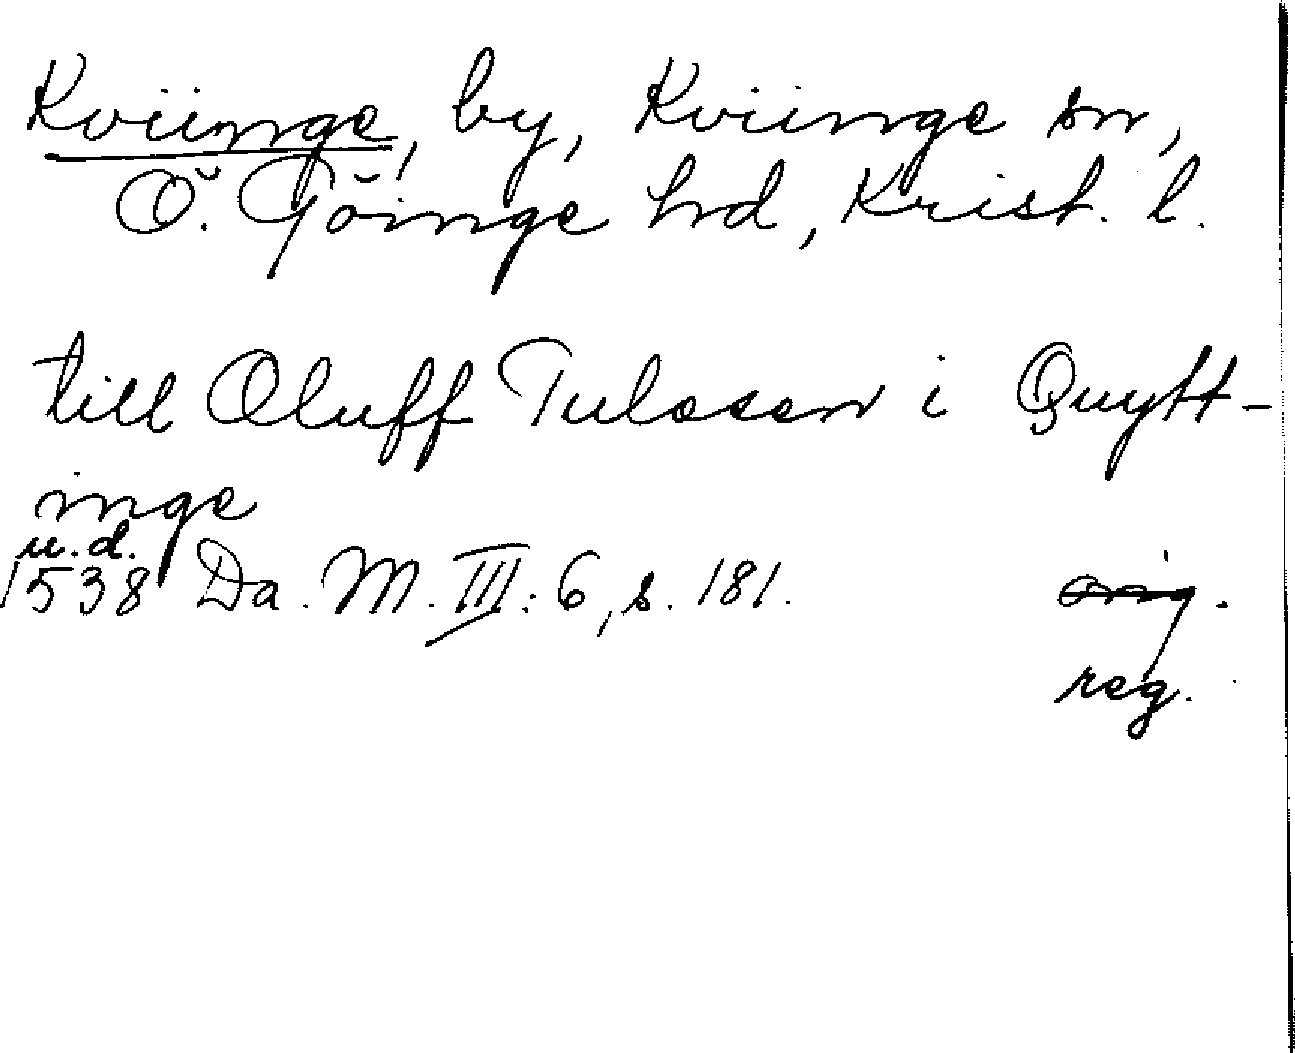 Kviinge, by, Kviinge sn,
Ö. Göinge hd, Krist. l.
till Oluff Tulssen i Quytt-
inge
u.d.
1538 Da. M. III: 6, s. 181.
orig.
reg.